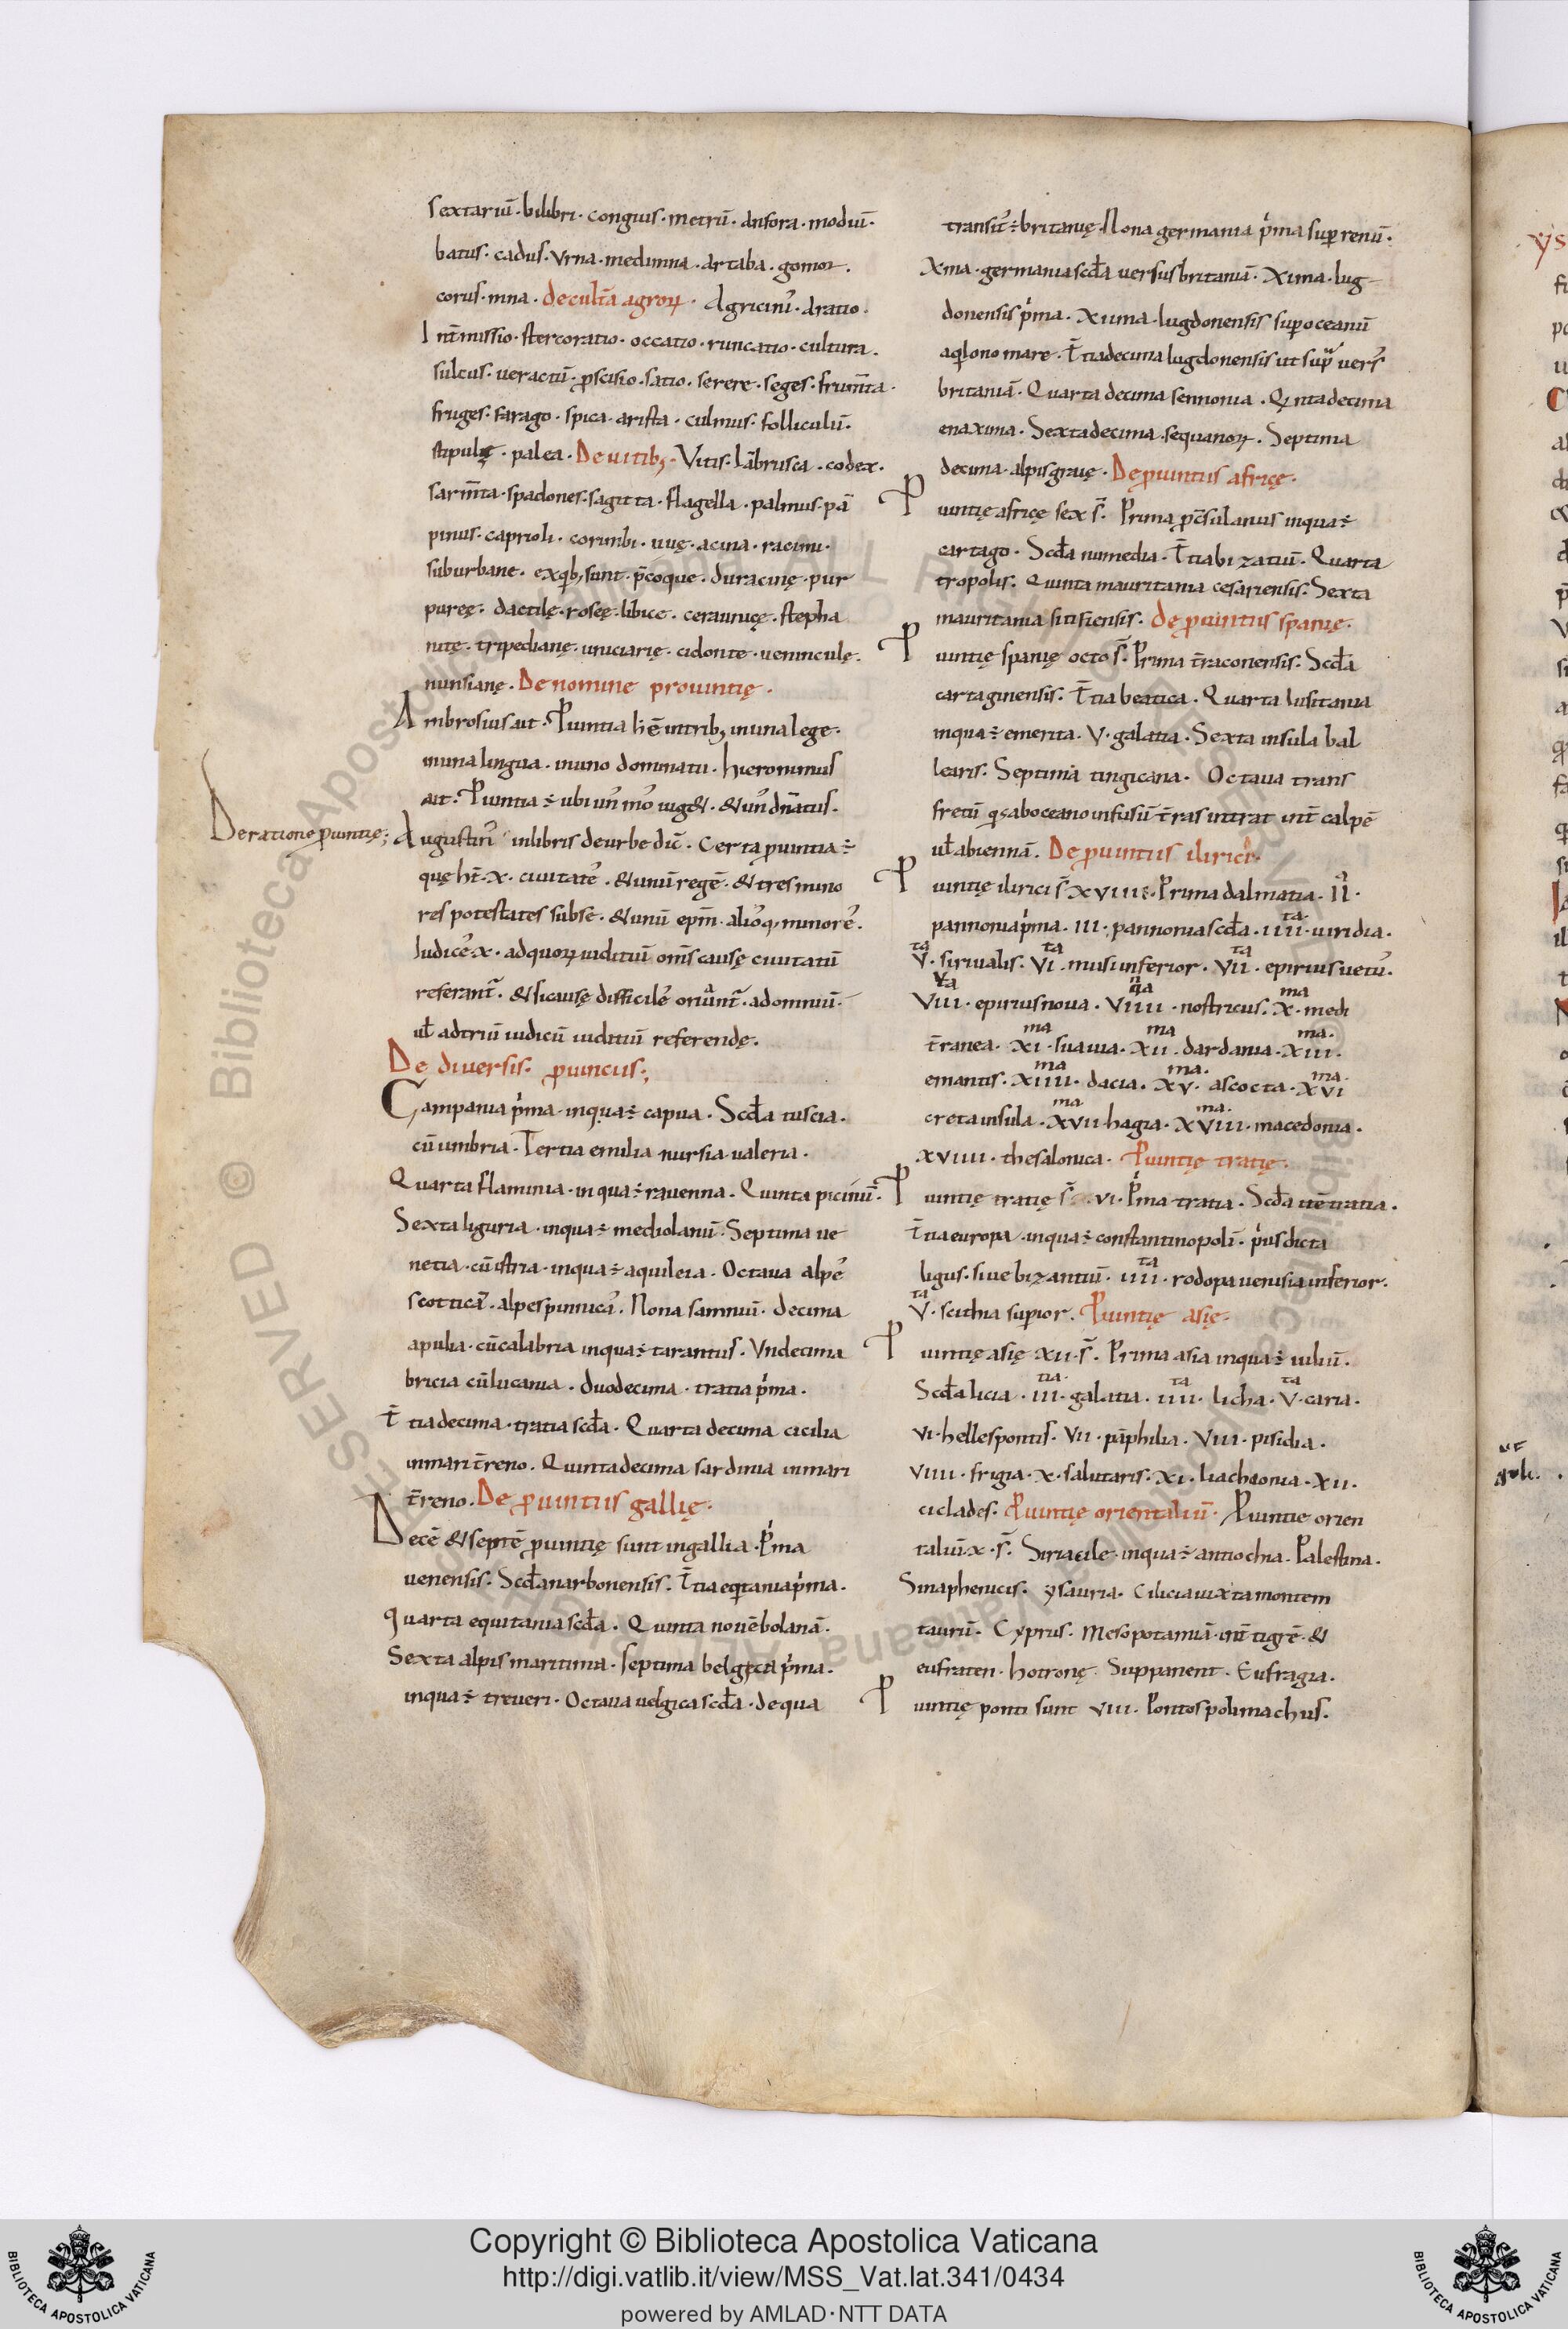 sextariū · bilibri · congius · metrū · anfora · modiū ·
batus · cadus · urna · medimna · artaba · gomor ·
corus · mna · De cult̄a agroꝝ · Agricinū · aratio ·
Int̄missio · stercoratio · occatio · runcatio · cultura ·
sulcus · ueractū · pscisio · satio · serere · seges · frum̄ta ·
fruges · farago · spica · arista · culmus · folliculū ·
stipulę · palea · De uitibꝫ · Vitis · lābrusca · codex ·
sarm̄ta · spadones · sagitta · flagella · palmus · pā
pinus · caprioli · corimbi · uuę · acina · racimi ·
suburbane · exqbꝫ sunt · p̄coque · duracinę · pur
pureę · dactilę · roseę · libice · ceraunicę · stepha
nitę · tripedianę · unciarię · cidonte · uenniculę ·
nunsianę · De nomine prouintię ·
Ambrosius ait · Puintia hēintribꝫ inunalege ·
inuna lingua · inuno dominatu · hieronimus
ait · Puintia ÷ ubi un᾿ mo᾿ iug& · & un᾿ dn̄atus ·
De ratione puintię; Augustin᾿ inlibris deurbe dic̄ · Certa puintia ÷
quę ht̄ · x · ciuitate᾿ · & unū regē · & tres mino
res potestates subse · & unū ep̄m · alio᾿qꝫ minore᾿ ·
Iudice᾿ · x · adquoꝝ iuditiū om̄s causę ciuitatū
referant᾿ · & sicausę difficile᾿ oriunt᾿ · adomniū ·
ul̄ adtriū iudicū iuditiū referendę ·
De diuersis · puinciis;
Campania p̍ma · inqua ÷ capua · Scd̄a tuscia ·
cū umbria · Tertia emilia nursia ualeria ·
Quarta flaminia · inqua ÷ rauenna · Quinta picinū ·
Sexta liguria · inqua ÷ mediolanū · Septima ue
netia · cū istria · inqua ÷ aquileia · Octaua alpe᾿
scottica᾿ · alpes punnica᾿ · Nona samniū · decima
apulia · cū calabria inqua ÷ tarantus · Vndecima
bricia cū lucania · duodecima · tratia p̍ma ·
T̄tiadecima · tratia scd̄a · Quarta decima cicilia
inmari t̄reno · Quintadecima sardinia inmari
t̄reno · De puintiis gallię ·
Decē & septē puintię sunt ingallia · P̍ma
uenensis · Scd̄a narbonensis · T̄tia eqtania p̍ma ·
Quarta equitania scd̄a · Quinta nouēbolanā ·
Sexta alpis maritima · septima belgica p̍ma ·
inqua ÷ treueri · Octaua uelgica scd̄a · dequa
transit᾿ ÷ britanię · Nona germania p̍ma sup renū ·
Xma · germania scd̄a uersus britaniā · XIma · lug
donensis p̍ma · XIIma · lugdonensis sup oceanū
aqlono mare · T̄tiadecima lugdonensis ut sup̄ uers᾿
britaniā · Quarta decima sennonia · Qintadecima
enaxima · Sextadecima · sequanoꝝ · Septima
decima · alpis graię · De puintiis africę ·
Puintię africę sex s̄ · Prima pc̄sulanus inqua ÷
cartago · Scd̄a numedia · T̄tia bizatiū · Quarta
tropolis · Quinta mauritania cesariensis · Sexta
mauritania sitifiensis · de puintiis spanię ·
Puintię spanię octo s̄ · Prima t̄raconensis · Scd̄a
cartaginensis · T̄tia beatica · Quarta lusitania
inqua ÷ emerita · V · galatia · Sexta insula bal
learis · Septima tingicana · Octaua trans
fretū qs aboceano infusū t̄ras intrat int̄ calpē
ul̄ abiennā · De puintiis ilirici ·
Puintię ilirici s̄ XVIIII · Prima dalmatia · II ·
pannonia p̍ma · III · pannonia scd̄a · IIII ta · uiridia ·
V ta · sirualis · VI ta · musi inferior · VII ta · epirius uetu᾿ ·
VIII va · epirius noua · VIIII na · nostricus · X ma · medi
t̄ranea · XI ma · suauia · XII ma · dardania · XIII ma ·
emantis · XIIII ma · dacia · XV ma · ascocta · XVI ma
creta insula · XVII ma · hagia · XVIII ma · macedonia ·
XVIIII · thesalonica · Puintię tratię ·
Puintię tratię s̄ VI · P̍ma tratia · Scd̄a itē tratia ·
T̄tia europa · inqua ÷ constantinopoli · p̍us dicta
ligus · siue bizantiū · IIII ta · rodopa uenusia inferior ·
V ta · scithia superior · Puintię asię ·
Puintię asię XII · s̄ · Prima asia inqua ÷ iuliū ·
Scd̄a licia · III tia · galatia · IIII ta · licha · V ta · caria ·
VI · hellespontis · VII · pāphilia · VIII · pisidia ·
VIIII · frigia · X · salutaris · XI · liachaonia · XII ·
ciclades · Puintię orientaliū · Puintie orien
taliū · x · s̄ · Siria cile · inqua ÷ antiochia · Palestina ·
Sinaphenicis · ysauria · Cilicia iuxta montem
taurū · Cyprus · Mesopotamiā · int̄ tigrē · &
eufraten · hotronę · Suppanent · Eufragia ·
Puintię ponti sunt VIII · Pontos polimachus ·
Copyright © Biblioteca Apostolica Vaticana
http://digi.vatlib.it/view/MSS_Vat.lat.341/0434
powered by AMLAD · NTT DATA
BIBLIOTECA APOSTOLICA VATICANA
BIBLIOTECA APOSTOLICA VATICANA